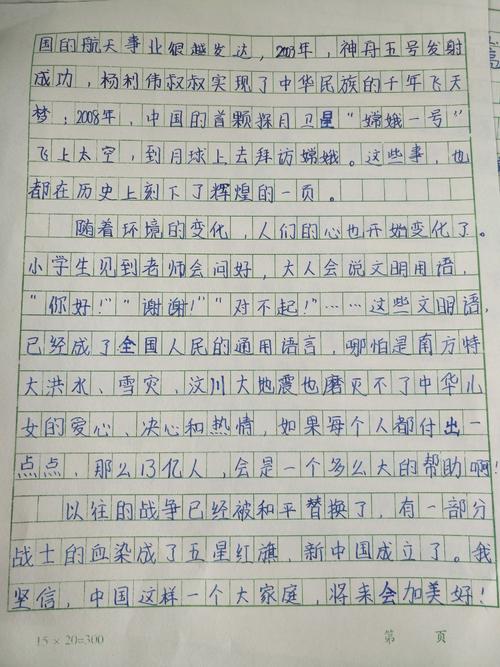 国的航天事业很越发达，2003年，神舟五号发射
成功，杨利伟叔叔实现了中华民族的千年飞天
梦；2008年，中国的首颗探月卫星“嫦娥一号”
飞上太空，到月球上去拜访嫦娥。这些事，也
都在历史上刻下了辉煌的一页。
随着环境的变化，人们的心也开始变化了。
小学生见到老师会问好，大人会说文明用语，
“你好！”“谢谢！”“对不起！”……这些文明语，
已经成了全国人民的通用语言，哪怕是南方特
大洪水、雪灾，汶川大地震也磨灭不了中华儿
女的爱心、决心和热情，如果每个人都付出一
点点，那么13亿人，会是一个多么大的帮助啊！
以往的战争已经被和平替换了，有一部分
战士的血染成了五星红旗，新中国成立了。我
坚信，中国这样一个大家庭，将来会加美好！
15×20=300 第 页